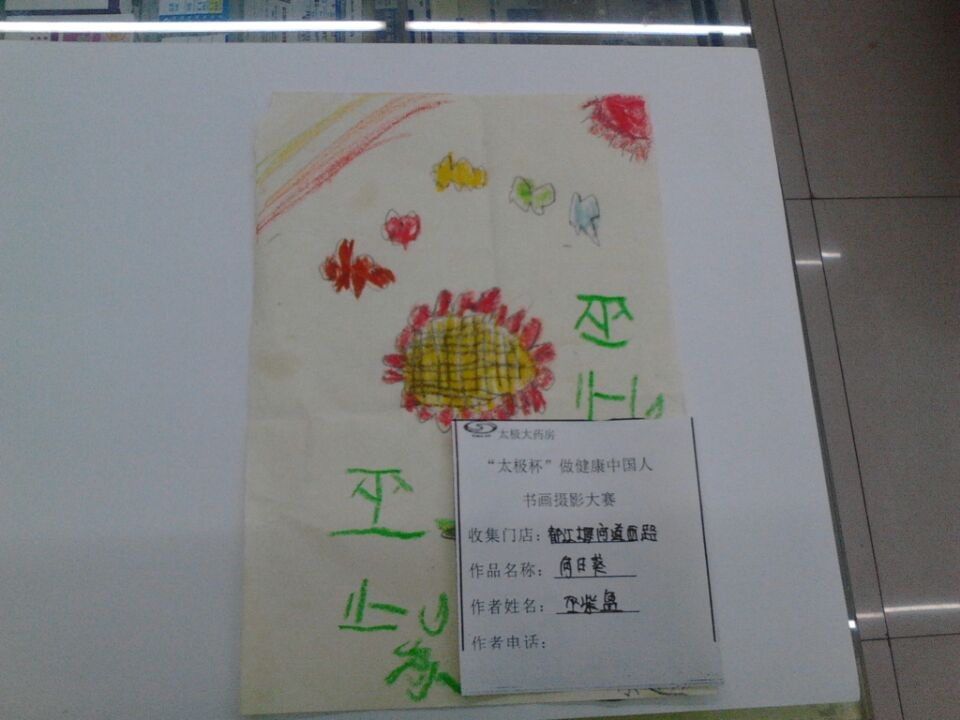 巫
巫
太极大药房
“太极杯”做健康中国人
书画摄影大赛
收集门店：都江堰向道西路
作品名称：向日葵
作者姓名：巫柴
作者电话：